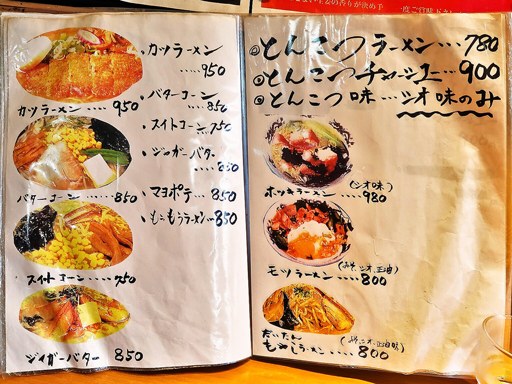 カツラーメン
.....950
カツラーメン....950
バターコーン
....850
スイトコーン.750
ジャガーバター
....850
バターコーン....850
マヨポテ...850
もこもうラーメン..850
スイトコーン....750
ジャガーバター 850
◎とんこつラーメン...780
◎とんこつチャーシュー...900
◎とんこつ味...シオ味のみ
(シオ味)
ホッキラーメン....980
(みそ、シオ、正油)
モツラーメン....800
(みそ、シオ、正油味)
だいたん
もやしラーメン....800